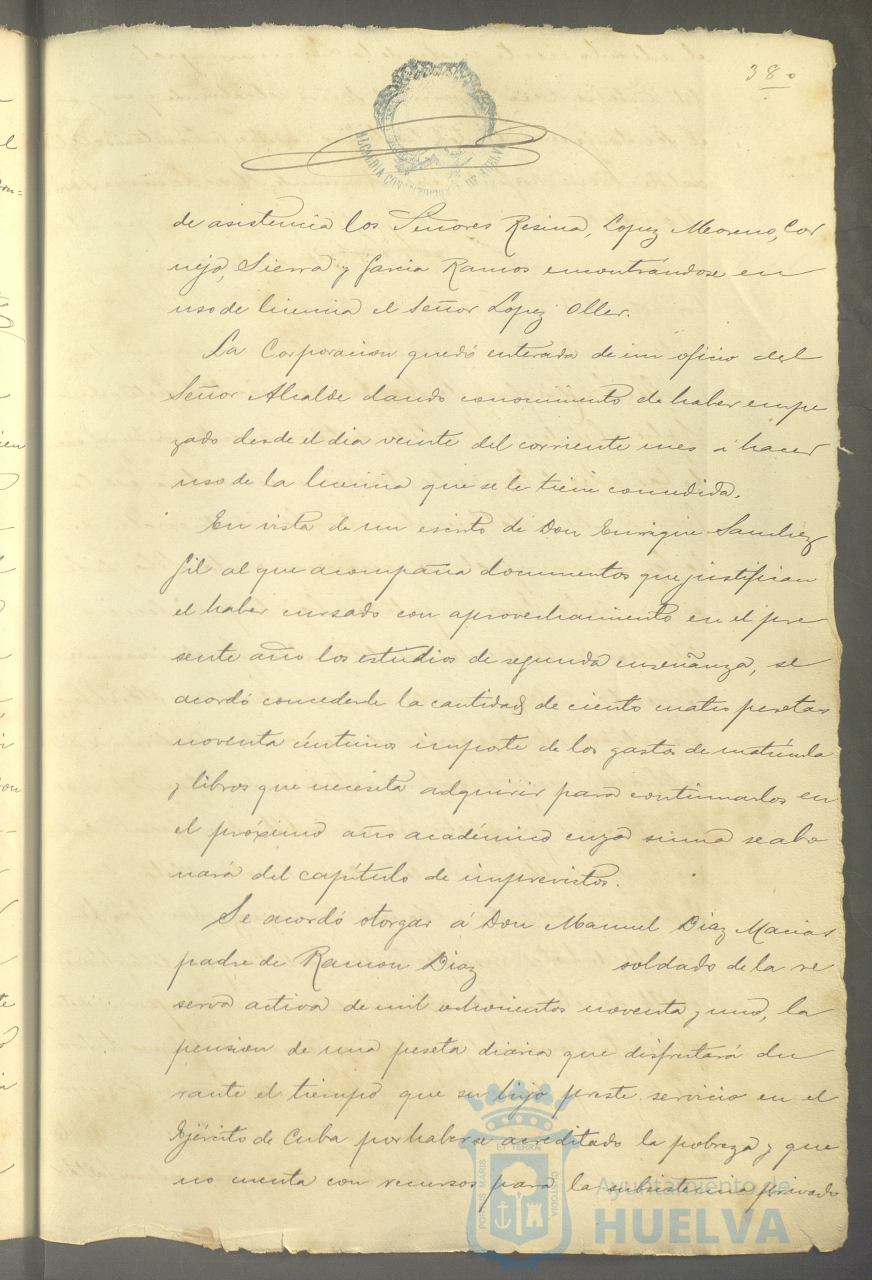 38
ALCALDIA CONSTITUCIONAL DE HUELVA
de asistencia los Señores Resina, Lopez Moreno, Cor
nejo, Sierra y Garcia Ramos encontrándose en
uso de licencia el Señor López Oller.
La Corporacion quedó enterada de un oficio del
Señor Alcalde dando conocimiento de haber empe
zado desde el dia veinte del corriente mes á hacer
uso de la licencia que se le tiene concedida.
En vista de un escrito de Don Enrique Sanchez
Gil al que acompaña documentos que justifican
el haber cursado con aprovechamiento en el pre
sente año los estudios de segunda enseñanza, se
acordó concederle la cantidad de ciento cuatro pesetas
noventa céntimos importe de los gastos de matrícula
y libros que necesita adquirir para continuarlos en
el próximo año académico cuya suma se abo
nará del capítulo de imprevistos.
Se acordó otorgar á Don Manuel Diaz Macias
padre de Ramon Diaz soldado de la re
serva activa de mil ochocientos noventa y uno, la
pension de una peseta diaria que disfrutará du
rante el tiempo que su hijo preste servicio en el
Ejército de Cuba por haberse acreditado la pobreza y que
no cuenta con recursos para la subsistencia privado
PORTUS MARIS ET TERRÆ CUSTODIA
Ayuntamiento de
HUELVA